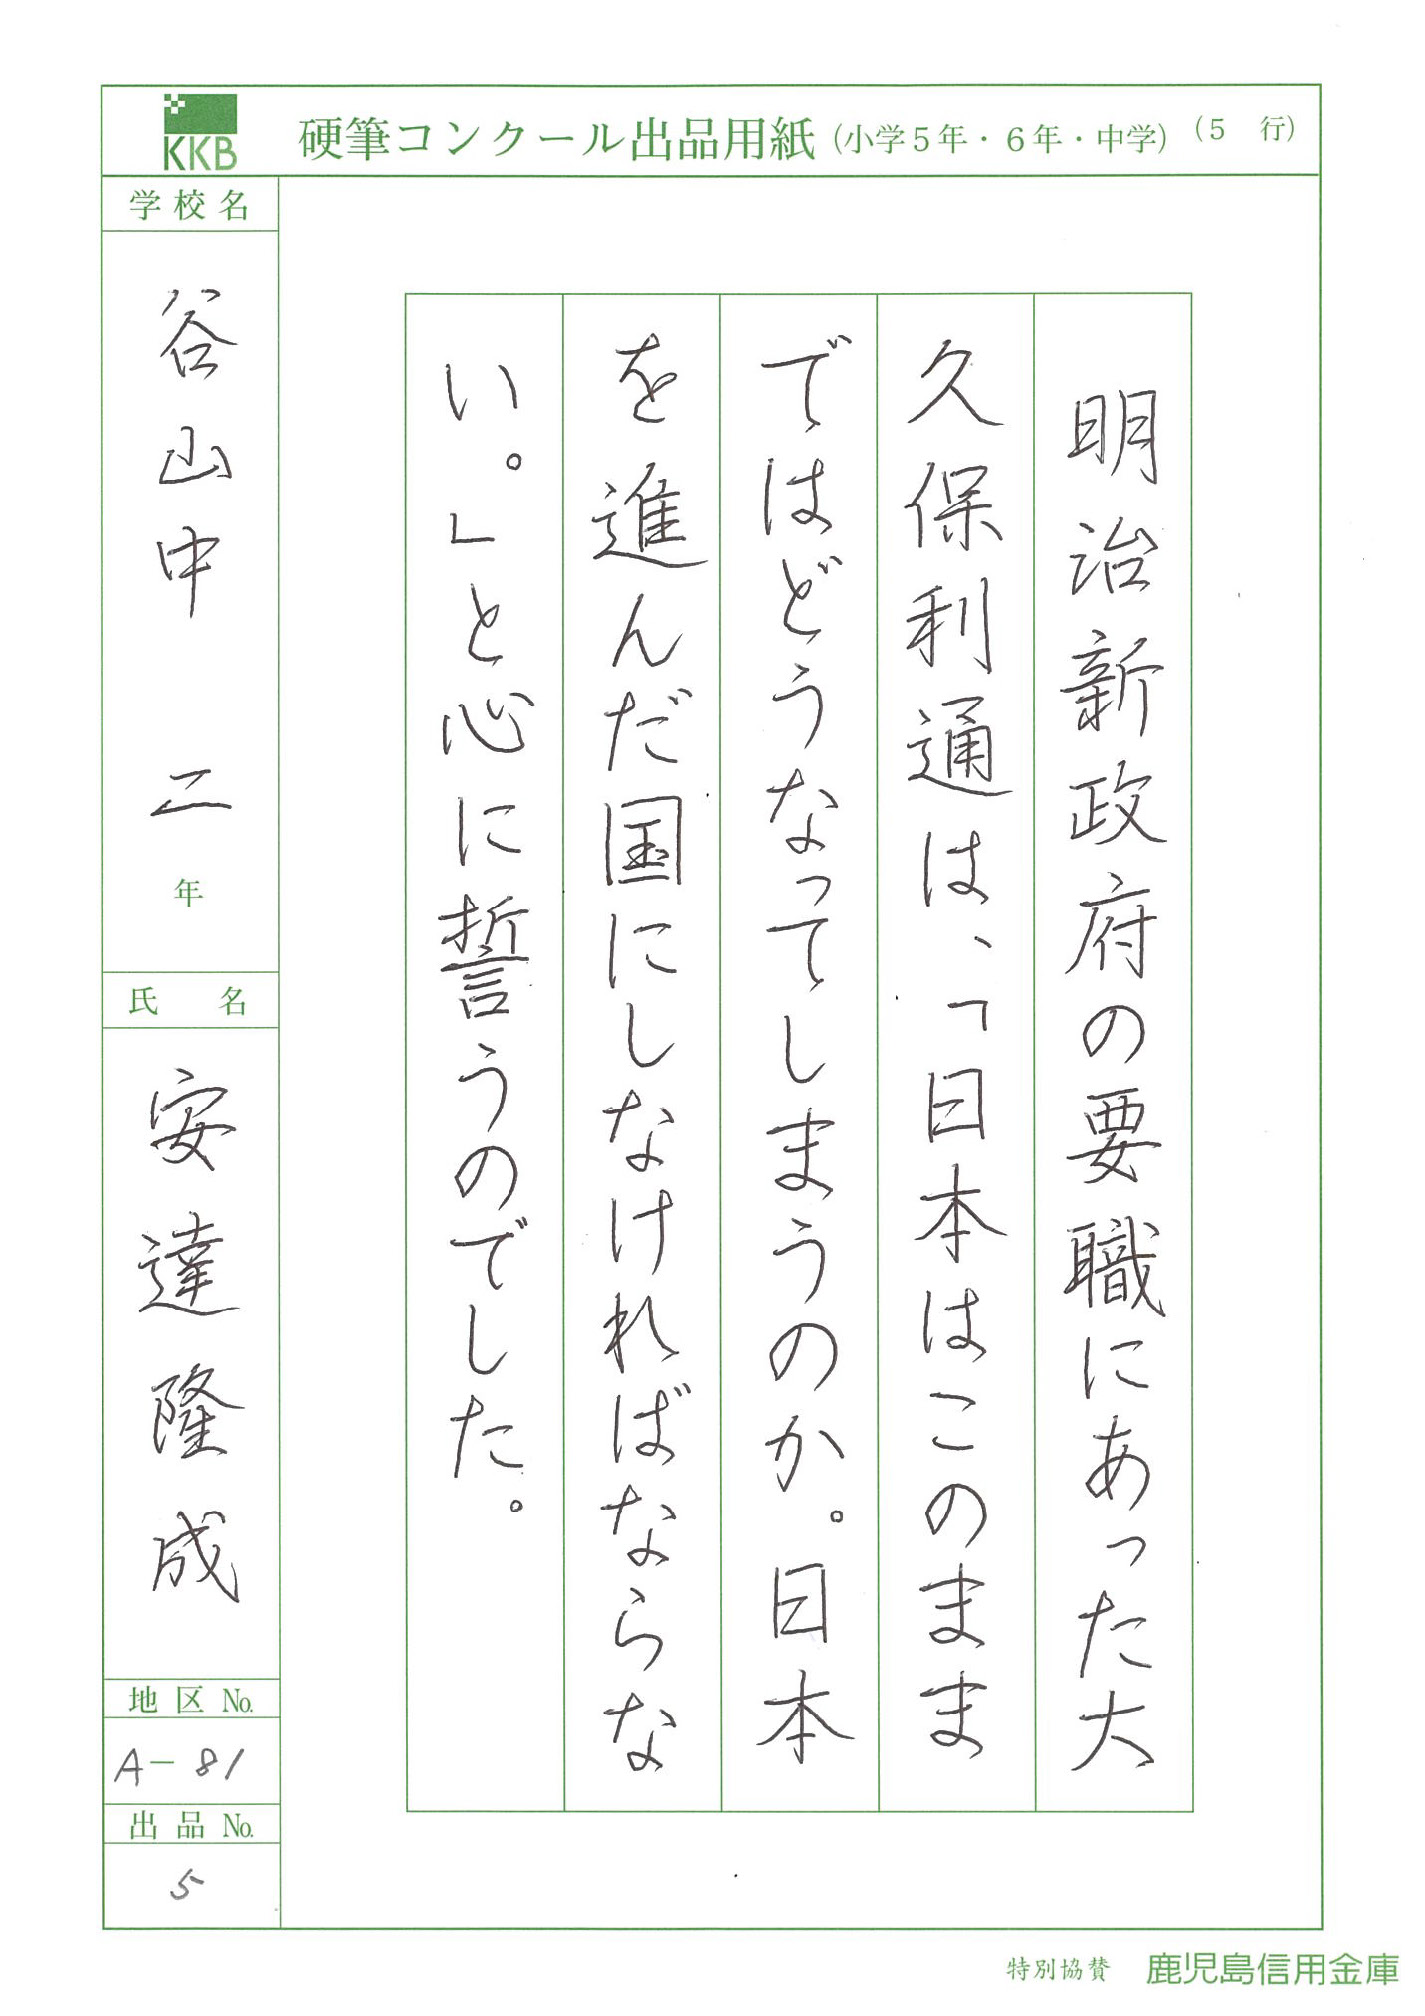 KKB
硬筆コンクール出品用紙（小学５年・６年・中学）（５　行）
明治新政府の要職にあった大
久保利通は、「日本はこのまま
ではどうなってしまうのか。日本
を進んだ国にしなければならな
い。」と心に誓うのでした。
学校名
谷山中　二年
氏　名
安達隆成
地区 No.
A－81
出品 No.
5
特別協賛　鹿児島信用金庫